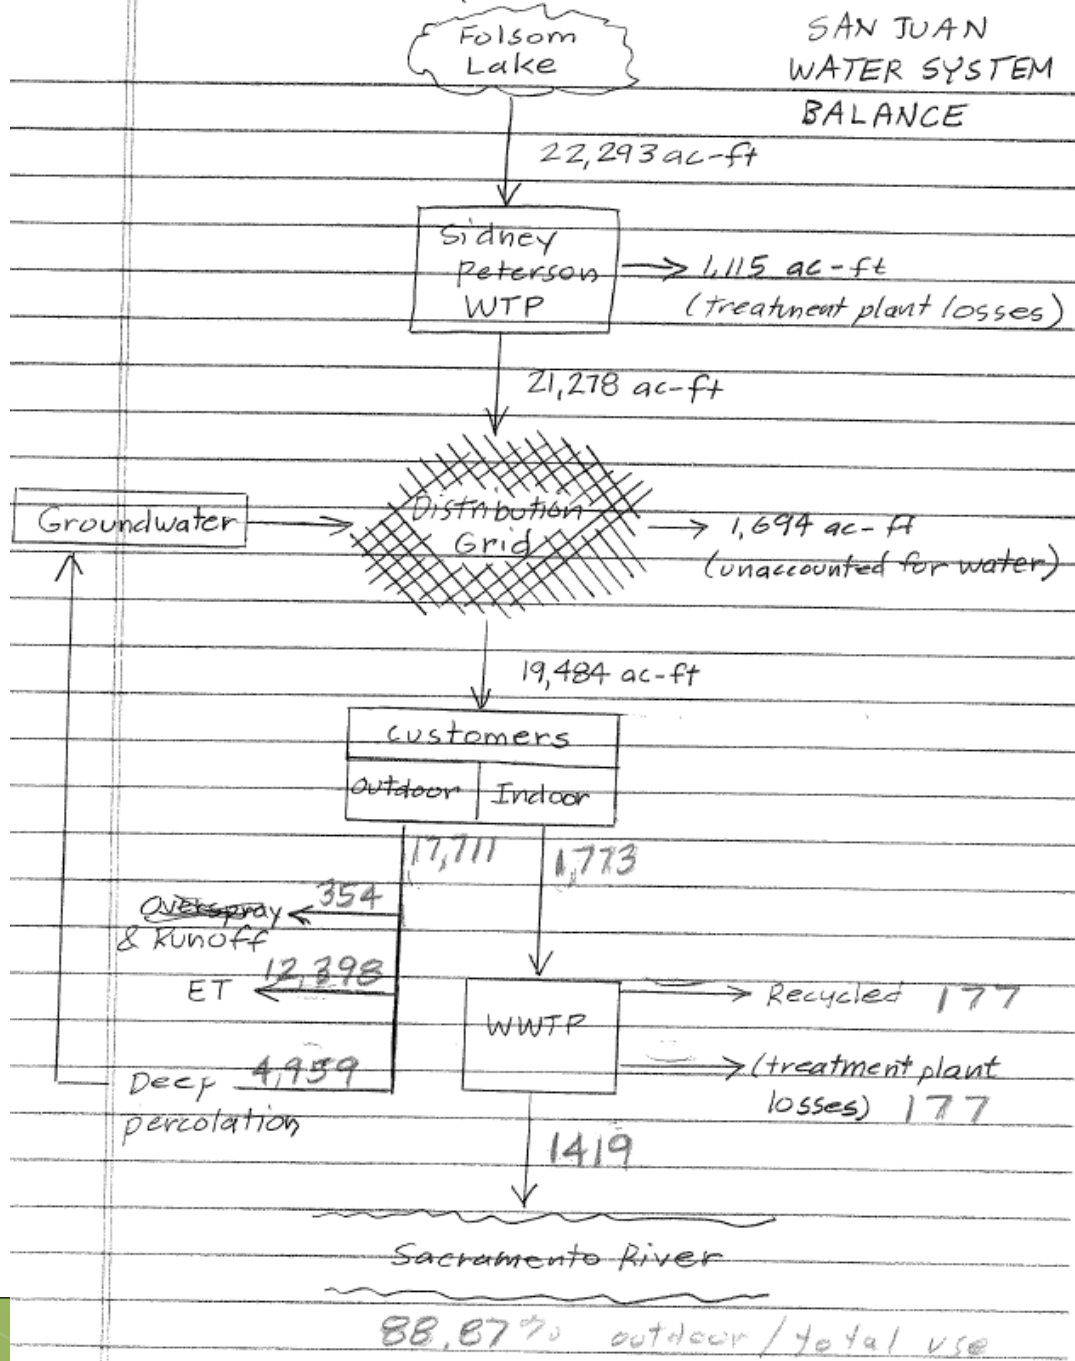 Folsom
Lake
SAN JUAN
WATER SYSTEM
BALANCE
22,293 ac-ft
Sidney
Peterson
WTP
1,115 ac-ft
(treatment plant losses)
21,278 ac-ft
Groundwater
Distribution
Grid
1,694 ac-ft
(unaccounted for water)
19,484 ac-ft
customers
Outdoor
Indoor
17,711
1,773
354
Overspray
& Runoff
12,398
ET
4,959
Deep
percolation
WWTP
Recycled 177
(treatment plant
losses) 177
1419
Sacramento River
88.87% outdoor / total use